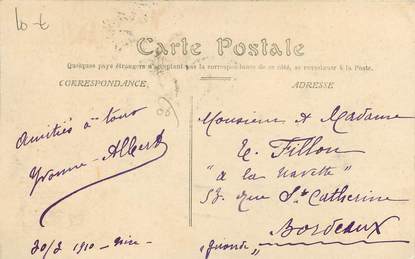 10 €
Carte Postale
Quelques pays étrangers n'acceptant pas la correspondance de ce côté, se renseigner à la Poste.
CORRESPONDANCE,
ADRESSE
Amitiés à tous
Yvonne - Albert
30/3 1910 - Nice -
Monsieur et Madame
Fillon
"à la Navette"
53. rue Ste Catherine
Bordeaux
"Gironde"